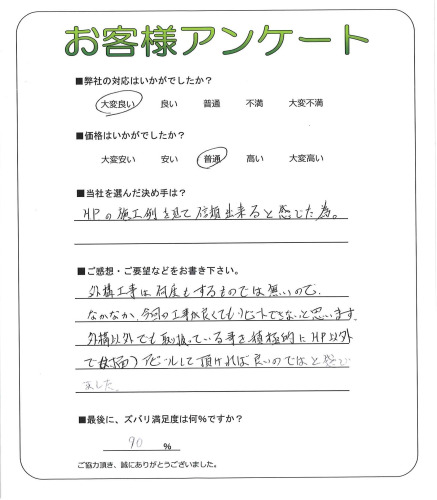 お客様アンケート
■弊社の対応はいかがでしたか？
大変良い 良い 普通 不満 大変不満
■価格はいかがでしたか？
大変安い 安い 普通 高い 大変高い
■当社を選んだ決め手は？
HPの施工例を見て信頼出来ると感じた為。
■ご感想・ご要望などをお書き下さい。
外構工事は何度もするものでは無いので、
なかなか、今回の工事が良くてもリピートできないと思います
外構以外でも取り扱っている事を積極的にHP以外
で アピールして頂ければ良いのではと感じ
ました。
■最後に、ズバリ満足度は何%ですか？
90 %
ご協力頂き、誠にありがとうございました。